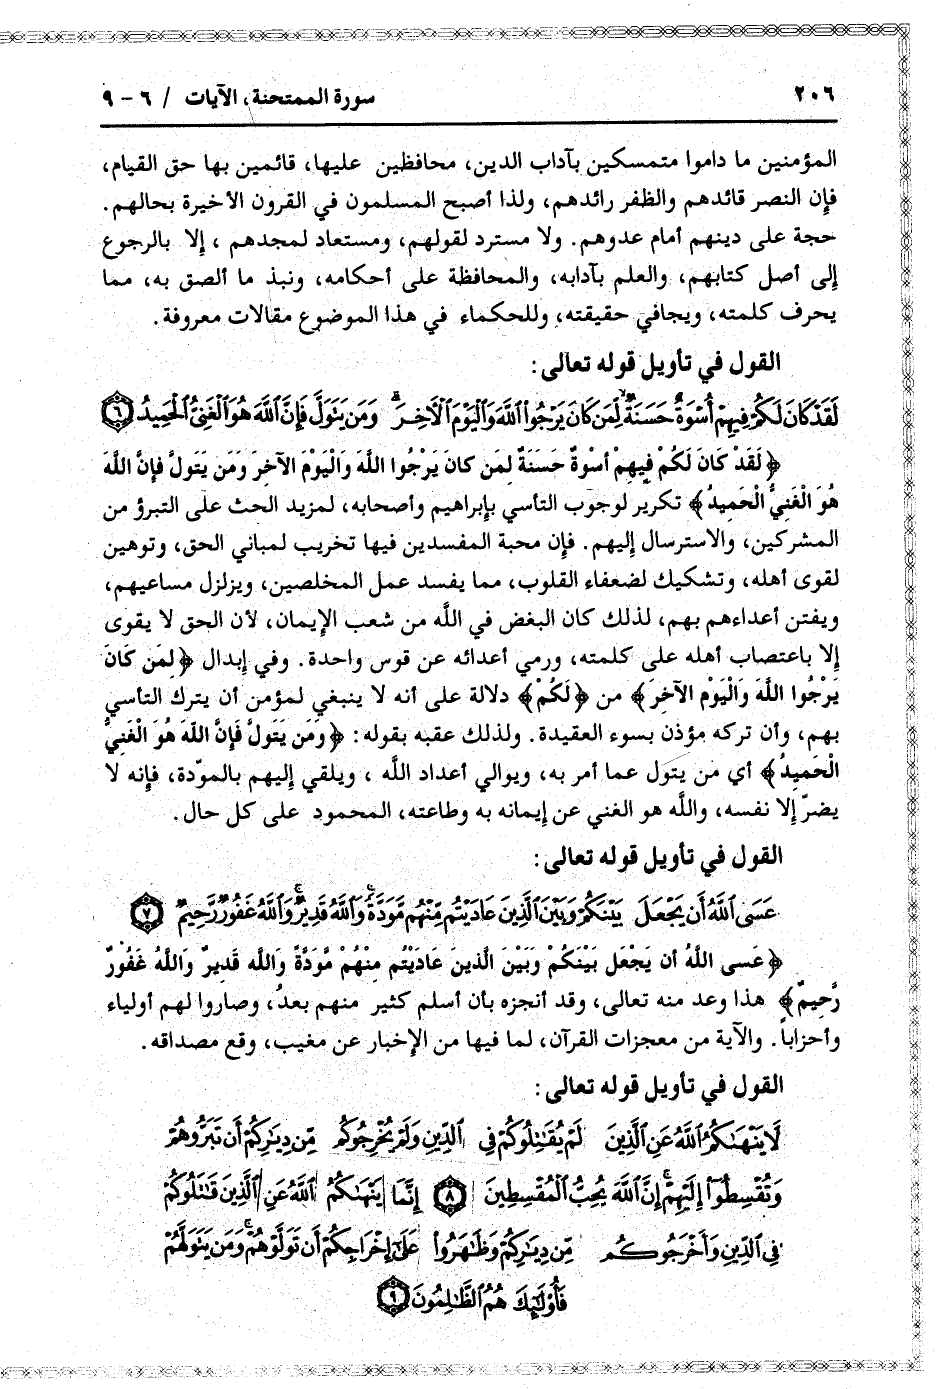 ٢٠٦ سورة الممتحنة، الآيات / ٦ - ٩
المؤمنين ما داموا متمسكين بآداب الدين، محافظين عليها، قائمين بها حق القيام،
فإن النصر قائدهم والظفر رائدهم، ولذا أصبح المسلمون في القرون الأخيرة بحالهم.
حجة على دينهم أمام عدوهم. ولا مسترد لقولهم، ومستعاد لمجدهم ، إلا بالرجوع
إلى أصل كتابهم، والعلم بآدابه، والمحافظة على أحكامه، ونبذ ما ألصق به، مما
يحرف كلمته، ويجافي حقيقته، وللحكماء في هذا الموضوع مقالات معروفة.
القول في تأويل قوله تعالى:
لَقَدْ كَانَ لَكُمْ فِيهِمْ أُسْوَةٌ حَسَنَةٌ لِّمَن كَانَ يَرْجُوا۟ ٱللَّهَ وَٱلْيَوْمَ ٱلْءَاخِرَ وَمَن يَتَوَلَّ فَإِنَّ ٱللَّهَ هُوَ ٱلْغَنِىُّ ٱلْحَمِيدُ ٦
﴿لَقَدْ كَانَ لَكُمْ فِيهِمْ أسْوةٌ حَسَنَةٌ لمَن كانَ يَرْجُوا اللَّهَ وَالْيَوْمَ الآخرَ وَمَن يَتَولَّ فإنَّ اللَّهَ
هُوَ الْغَنيُّ الْحَميدُ﴾ تكرير لوجوب التأسي بإبراهيم وأصحابه، لمزيد الحث على التبرؤ من
المشركين، والاسترسال إليهم. فإن محبة المفسدين فيها تخريب لمباني الحق، وتوهين
لقوى أهله، وتشكيك لضعفاء القلوب، مما يفسد عمل المخلصين، ويزلزل مساعيهم،
ويفتن أعداءهم بهم، لذلك كان البغض في اللَّه من شعب الإيمان، لأن الحق لا يقوى
إلا باعتصاب أهله على كلمته، ورمي أعدائه عن قوس واحدة. وفي إبدال ﴿لمَن كَانَ
يَرْجُوا اللَّهَ وَالْيَوْم الآخرَ﴾ من ﴿لَكُمْ﴾ دلالة على أنه لا ينبغي لمؤمن أن يترك التأسي
بهم، وأن تركه مؤذن بسوء العقيدة. ولذلك عقبه بقوله: ﴿ومَن يَتَولَّ فَإنَّ اللَّهَ هوَ الْغَنيُّ
الْحَميدُ﴾ أي من يتول عما أمر به، ويوالي أعداد اللَّه ، ويلقي إليهم بالموّدة، فإنه لا
يضرّ إلا نفسه، واللَّه هو الغني عن إيمانه به وطاعته، المحمود على كل حال.
القول في تأويل قوله تعالى:
عَسَى ٱللَّهُ أَن يَجْعَلَ بَيْنَكُمْ وَبَيْنَ ٱلَّذِينَ عَادَيْتُم مِّنْهُم مَّوَدَّةً وَٱللَّهُ قَدِيرٌ وَٱللَّهُ غَفُورٌ رَّحِيمٌ ٧
﴿عَسى اللَّهُ أن يَجْعَل بَيْنَكُمْ وبَيْنَ الَّذينَ عَادَيْتُم منْهُمْ مَّودَّةً وَاللَّه قَديرٌ وَاللَّهُ غَفُورٌ
رَّحِيمٌ﴾ هذا وعد منه تعالى، وقد أنجزه بأن أسلم كثير منهم بعدُ، وصاروا لهم أولياء
وأحزاباً. والآية من معجزات القرآن، لما فيها من الإخبار عن مغيب، وقع مصداقه.
القول في تأويل قوله تعالى:
لَّا يَنْهَىٰكُمُ ٱللَّهُ عَنِ ٱلَّذِينَ لَمْ يُقَٰتِلُوكُمْ فِى ٱلدِّينِ وَلَمْ يُخْرِجُوكُم مِّن دِيَٰرِكُمْ أَن تَبَرُّوهُمْ
وَتُقْسِطُوٓا۟ إِلَيْهِمْ إِنَّ ٱللَّهَ يُحِبُّ ٱلْمُقْسِطِينَ ٨ إِنَّمَا يَنْهَىٰكُمُ ٱللَّهُ عَنِ ٱلَّذِينَ قَٰتَلُوكُمْ
فِى ٱلدِّينِ وَأَخْرَجُوكُم مِّن دِيَٰرِكُمْ وَظَٰهَرُوا۟ عَلَىٰٓ إِخْرَاجِكُمْ أَن تَوَلَّوْهُمْ وَمَن يَتَوَلَّهُمْ
فَأُو۟لَٰٓئِكَ هُمُ ٱلظَّٰلِمُونَ ٩